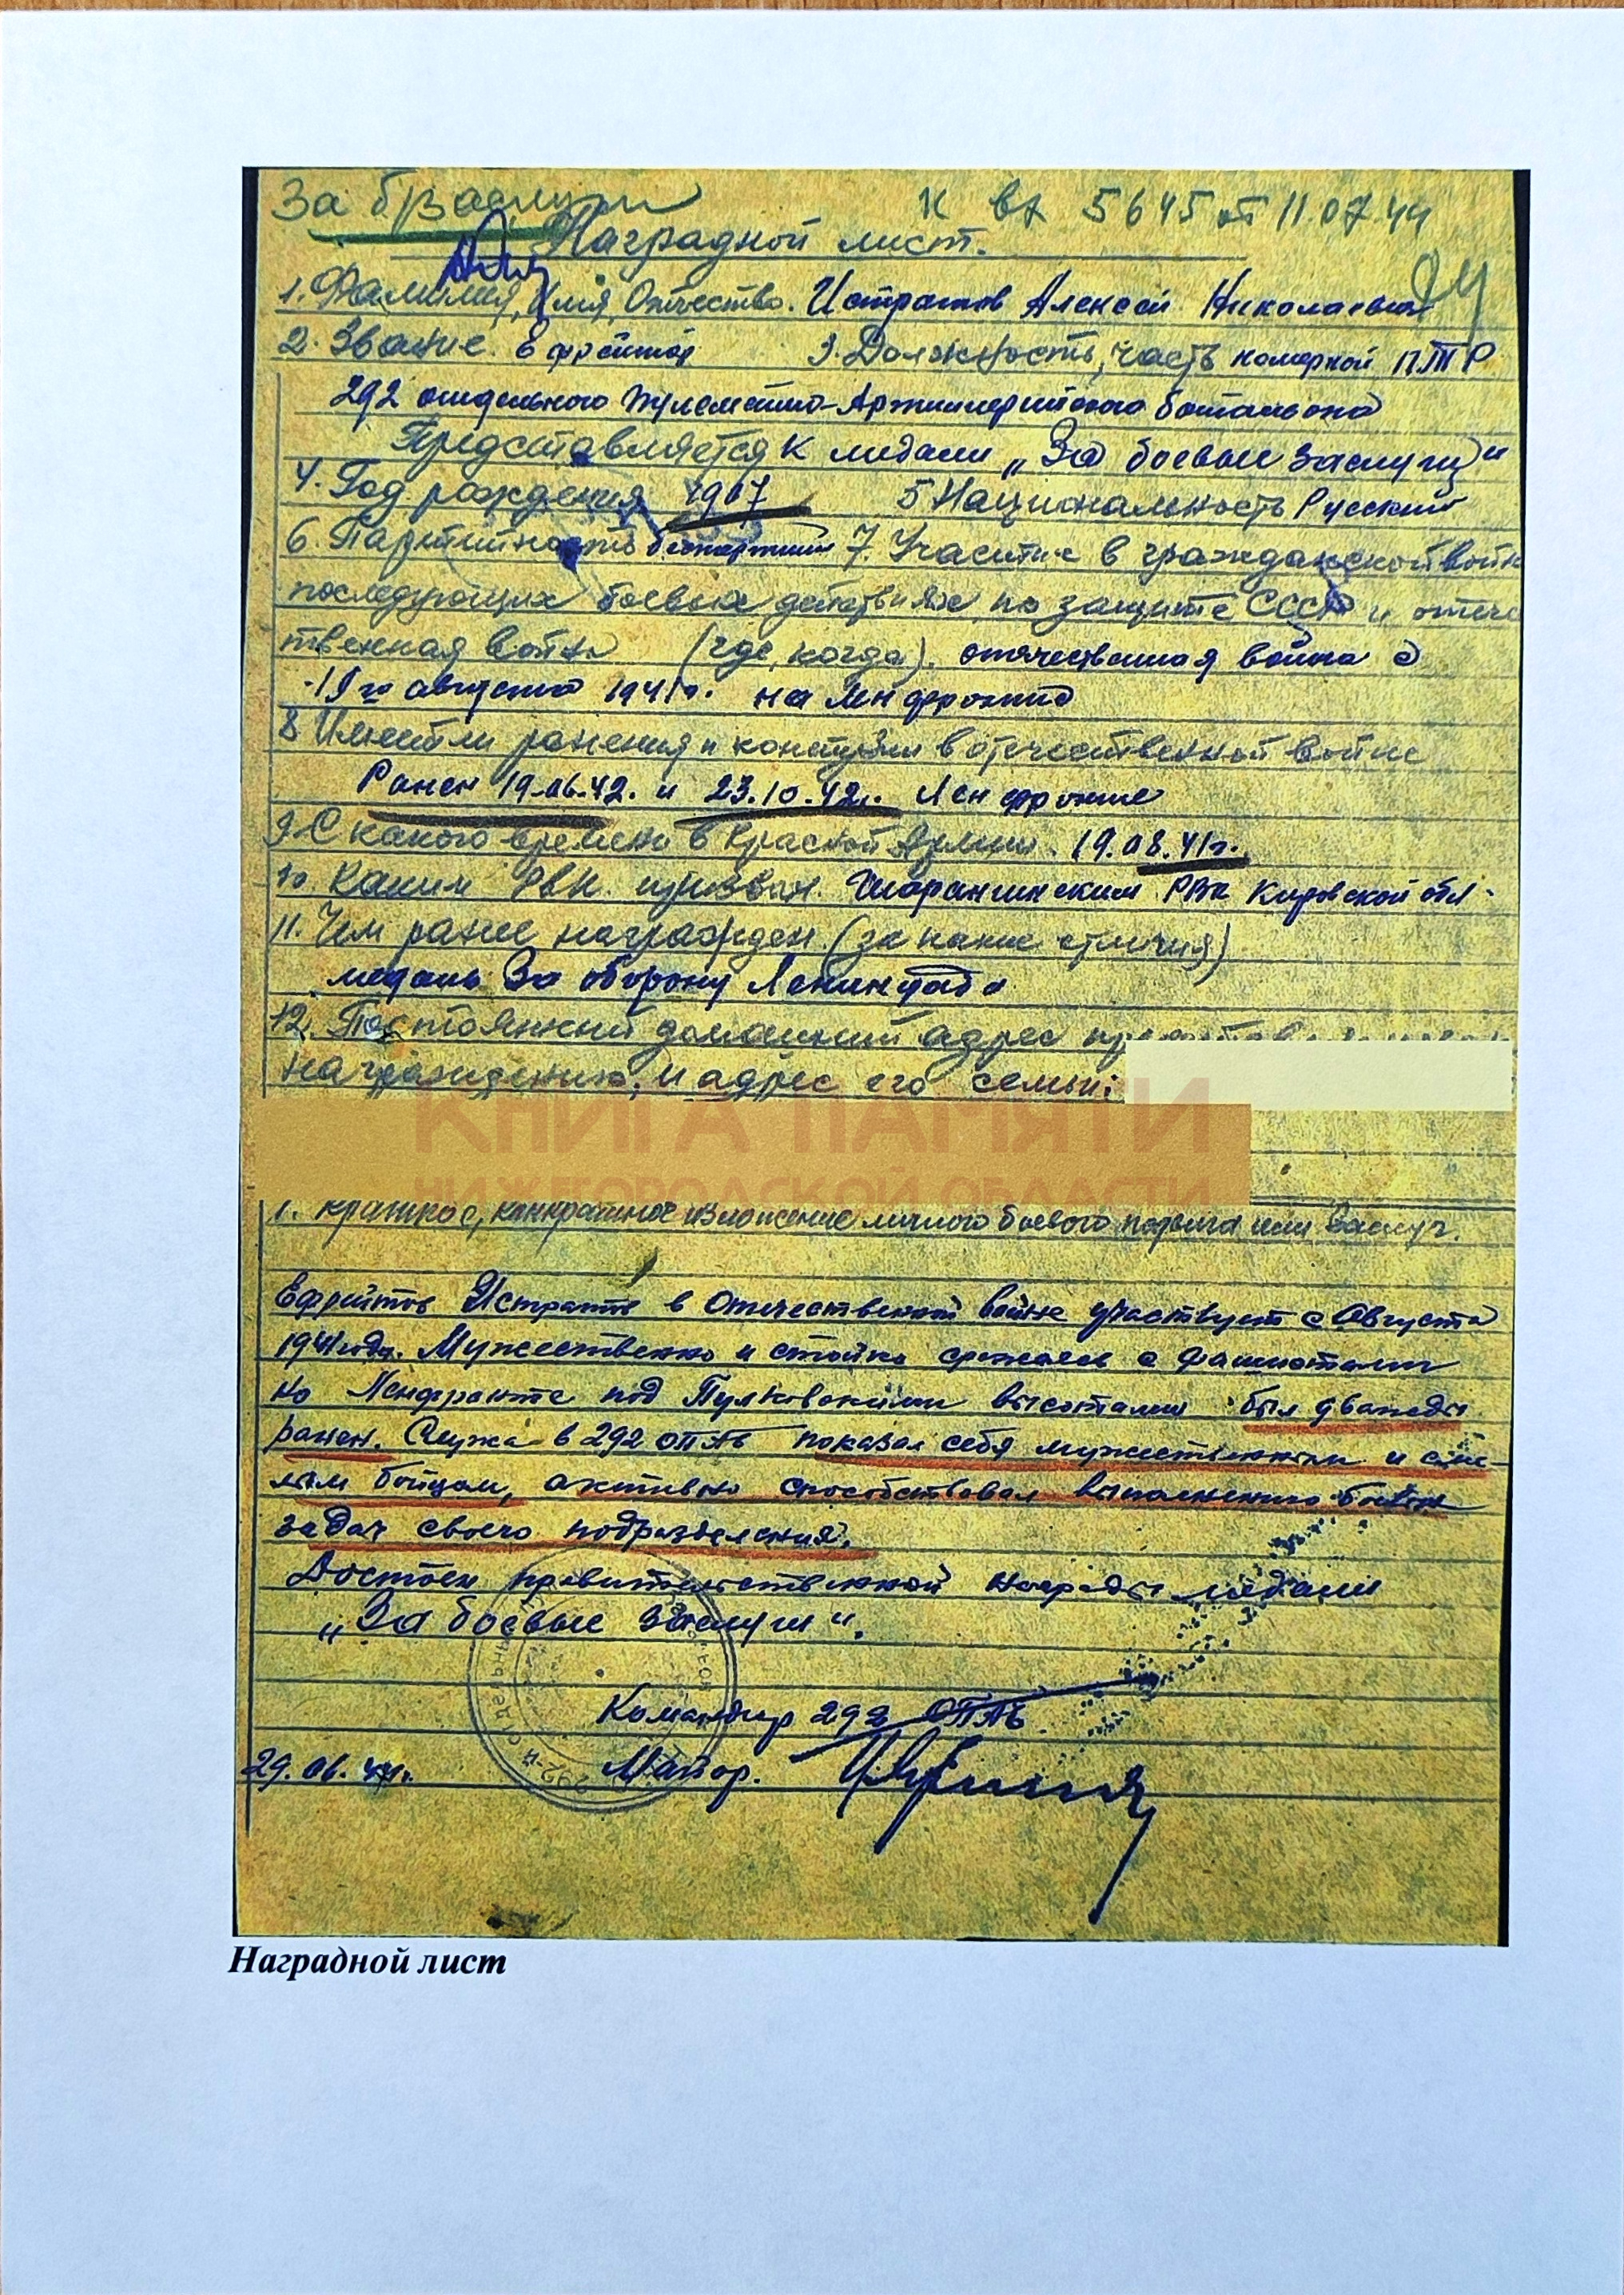 За б/заслуги К вх 5645 от 11.07.44
Наградной лист.
1. Фамилия, Имя, Отчество. Истратов Алексей Николаевич
2. Звание. Ефрейтор 3. Должность, часть номерной ПТР
292 отдельного Пулеметно-Артиллерийского батальона
Представляется к медали „За боевые заслуги"
4. Год рождения 1907 5 Национальность Русский
6. Партийность беспартийный 7. Участие в гражданской войне
последующих боевых действиях по защите СССР и отече
ственная войне (где, когда). отечественная война с
19го августа 1941г. на Ленфронте
8 Имеет ли ранения и контузии в отечественной войне
Ранен 19.06.42. и 23.10.42г. Лен фронте
9. С какого времени в Красной Армии. 19.08.41г.
10. Каким РВК призван. Шарангинским РВК Кировской обл.
11. Чем ранее награжден. (за какие отличия)
медаль За оборону Ленинграда
12. Постоянный домашний адрес
награждению, и адрес его семьи:
КНИГА ПАМЯТИ
НИЖЕГОРОДСКОЙ ОБЛАСТИ
1. краткое, конкретное изложение личного боевого подвига или заслуг.
Ефрейтор Истратов в Отечественной войне участвует с Августа
1941 года. Мужественно и стойко сражаясь с фашистами
на Ленфронте под Пулковскими высотами был дважды
ранен. Служа в 292 ОПАБ показал себя мужественным и сме-
лым бойцом, активно способствовал выполнению боевых
задач своего подразделения.
Достоен правительственной награды медали
„За боевые заслуги".
Командир 292 ОПАБ
29.06.44г. Майор.
Наградной лист